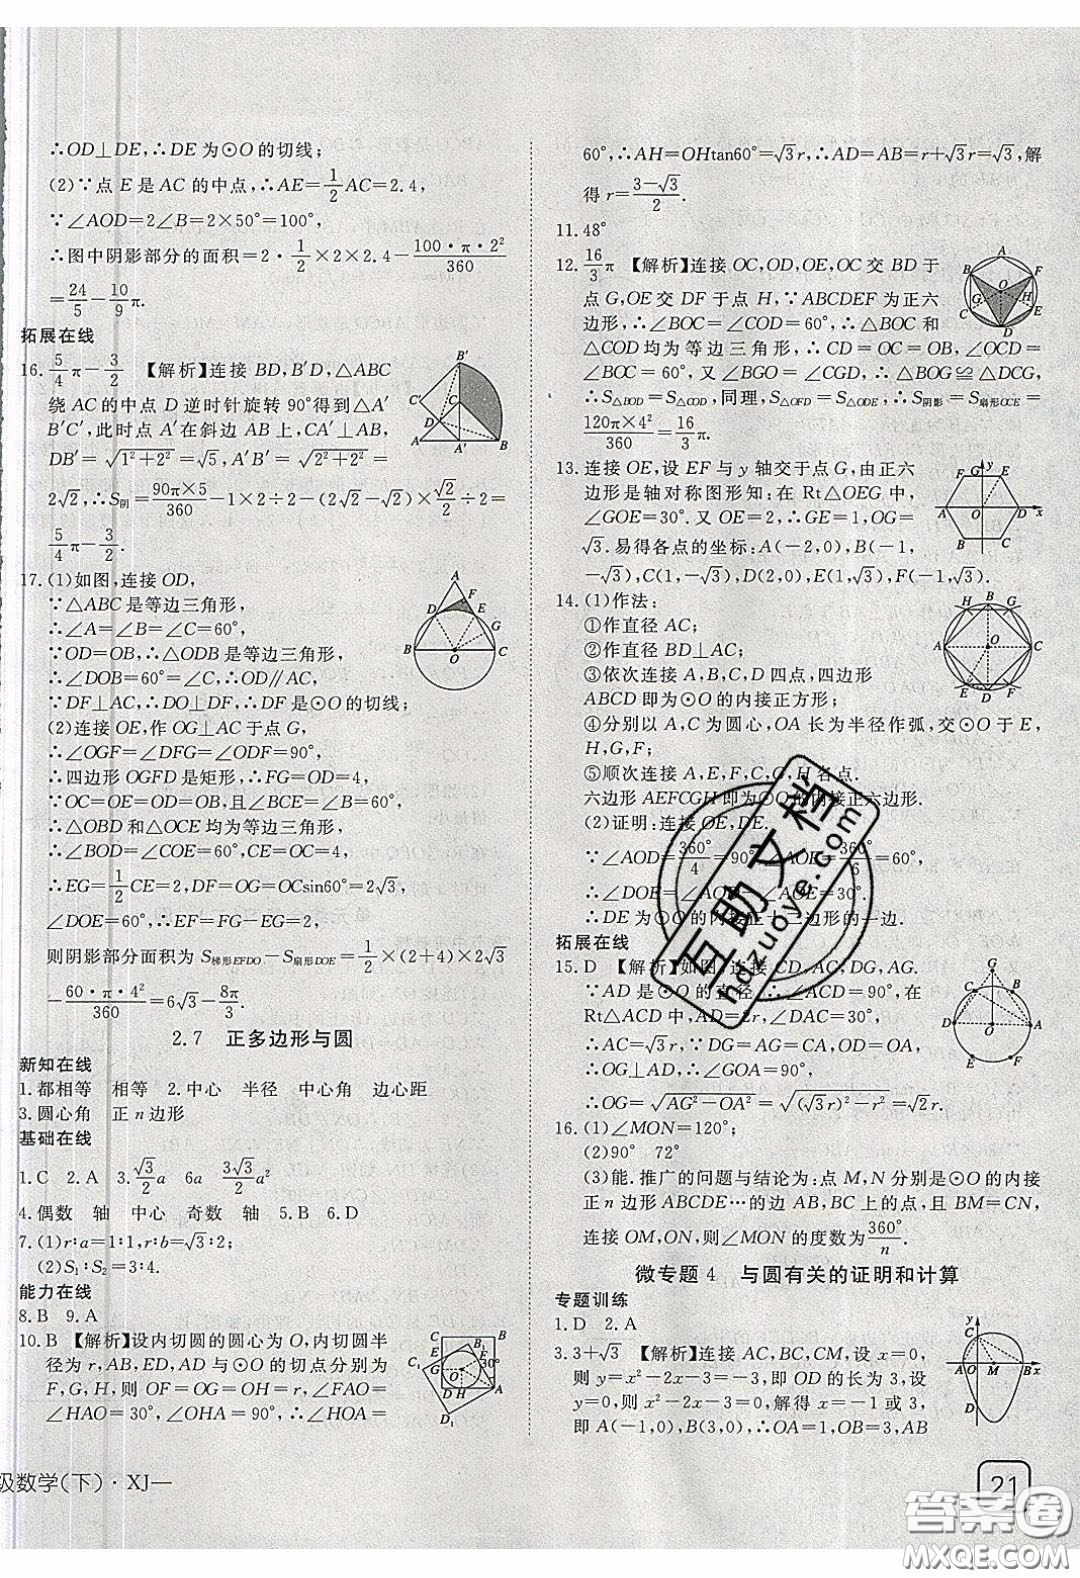 ∴OD⊥DE,∴DE 为⊙O 的切线;
(2)∵点 E 是 AC 的中点,∴AE=1/2AC=2.4,
∵∠AOD=2∠B=2×50°=100°,
∴图中阴影部分的面积=2·1/2×2×2.4−100·π·2²/360
=24/5−10/9π.
拓展在线
16. 5/4π−3/2 【解析】连接 BD,B′D,△ABC
绕 AC 的中点 D 逆时针旋转 90°得到△A′
B′C′,此时点 A′在斜边 AB 上,CA′⊥AB,
DB′=√(1²+2²)=√5,A′B′=√(2²+2²)=
2√2,∴S阴=90π×5/360−1×2÷2−(2√2−√2)×√2/2÷2=
5/4π−3/2.
17.(1)如图,连接 OD,
∵△ABC 是等边三角形,
∴∠A=∠B=∠C=60°,
∵OD=OB,∴△ODB 是等边三角形,
∴∠DOB=60°=∠C,∴OD∥AC,
∵DF⊥AC,∴DO⊥DF,∴DF 是⊙O 的切线;
(2)连接 OE,作 OG⊥AC 于点 G,
∴∠OGF=∠DFG=∠ODF=90°,
∴四边形 OGFD 是矩形,∴FG=OD=4,
∵OC=OE=OD=OB,且∠COE=∠B=60°,
∴△OBD 和△OCE 均为等边三角形,
∴∠BOD=∠COE=60°,CE=OC=4,
∴EG=1/2CE=2,DF=OG=OCsin60°=2√3,
∠DOE=60°,∴EF=FG−EG=2,
则阴影部分面积为 S梯形EFDO−S扇形DOE=1/2×(2+4)×2√3
−60·π·4²/360=6√3−8π/3.
2.7 正多边形与圆
新知在线
1.都相等 相等 2.中心 半径 中心角 边心距
3.圆心角 正 n 边形
基础在线
1.C 2.A 3.√3/2a 6a 3√3/2a²
4.偶数 轴 中心 奇数 轴 5.B 6.D
7.(1)r∶a=1∶1,r∶b=√3∶2;
(2)S₁∶S₂=3∶4.
能力在线
8.B 9.A
10.B 【解析】设内切圆的圆心为 O,内切圆半
径为 r,AB,ED,AD 与⊙O 的切点分别为
F,G,H,则 OF=OG=OH=r,∠FAO=
∠HAO=30°,∠OHA=90°,∴∠HOA=
级数学(下)·XJ—
60°,∴AH=OHtan60°=√3r,∴AD=AB=r+√3r,解
得 r=3−√3/2.
11.48°
12. 16/3π 【解析】连接 OC,OD,OE,OC 交 BD 于
点 G,OE 交 DF 于点 H,∵ABCDEF 为正六
边形,∴∠BOC=∠COD=60°,∴△BOC 和
△COD 均为等边三角形,∴CD=OC=OB,∠OCD=
60°=∠BOC.又∠BGO=∠CGD,∴△BOG≌△DCG,
∴S△BOD=S△COD,同理,S△OFD=S△ODE,∴S阴影=S扇形OCE=
120π×4²/360=16/3π.
13.连接 OE,设 EF 与 y 轴交于点 G,由正六
边形是轴对称图形知:在 Rt△OEG 中,
∠GOE=30°.又 OE=2,∴GE=1,OG=
√3.易得各点的坐标:A(−2,0),B(−1,
−√3),C(1,−√3),D(2,0),E(1,√3),F(−1,√3).
14.(1)作法:
①作直径 AC;
②作直径 BD⊥AC;
③依次连接 A,B,C,D 四点,四边形
ABCD 即为⊙O 的内接正方形;
④分别以 A,C 为圆心,OA 长为半径作弧,交⊙O 于 E,
H,G,F;
⑤顺次连接 A,E,F,C,G,H 各点.
六边形 AEFCGH 即为⊙O 的内接正六边形.
(2)证明:连接 OE,DE.
∵∠AOD=360°/4=90°,∠AOE=360°/6=60°,
∴∠DOE=∠AOD−∠AOE=30°.
∴DE 为⊙O 的内接正十二边形的一边.
拓展在线
15.D 【解析】如图,连接 CD,AC,DG,AG.
∵AD 是⊙O 的直径,∴∠ACD=90°,在
Rt△ACD 中,AD=2r,∠DAC=30°,
∴AC=√3r,∵DG=AG=CA,OD=OA,
∴OG⊥AD,∴∠GOA=90°,
∴OG=√(AG²−OA²)=√((√3r)²−r²)=√2r.
16.(1)∠MON=120°;
(2)90° 72°
(3)能.推广的问题与结论为:点 M,N 分别是⊙O 的内接
正 n 边形 ABCDE…的边 AB,BC 上的点,且 BM=CN,
连接 OM,ON,则∠MON 的度数为360°/n.
微专题 4 与圆有关的证明和计算
专题训练
1.D 2.A
3.3+√3 【解析】连接 AC,BC,CM,设 x=0,
则 y=x²−2x−3=−3,即 OD 的长度为 3,
设 y=0,则 0=x²−2x−3,解得 x=−1 或 3,
即 A(−1,0),B(3,0),∴OA=1,OB=3,
21
互助文档
hdzuoye.com
答案圈
MXQE.COM